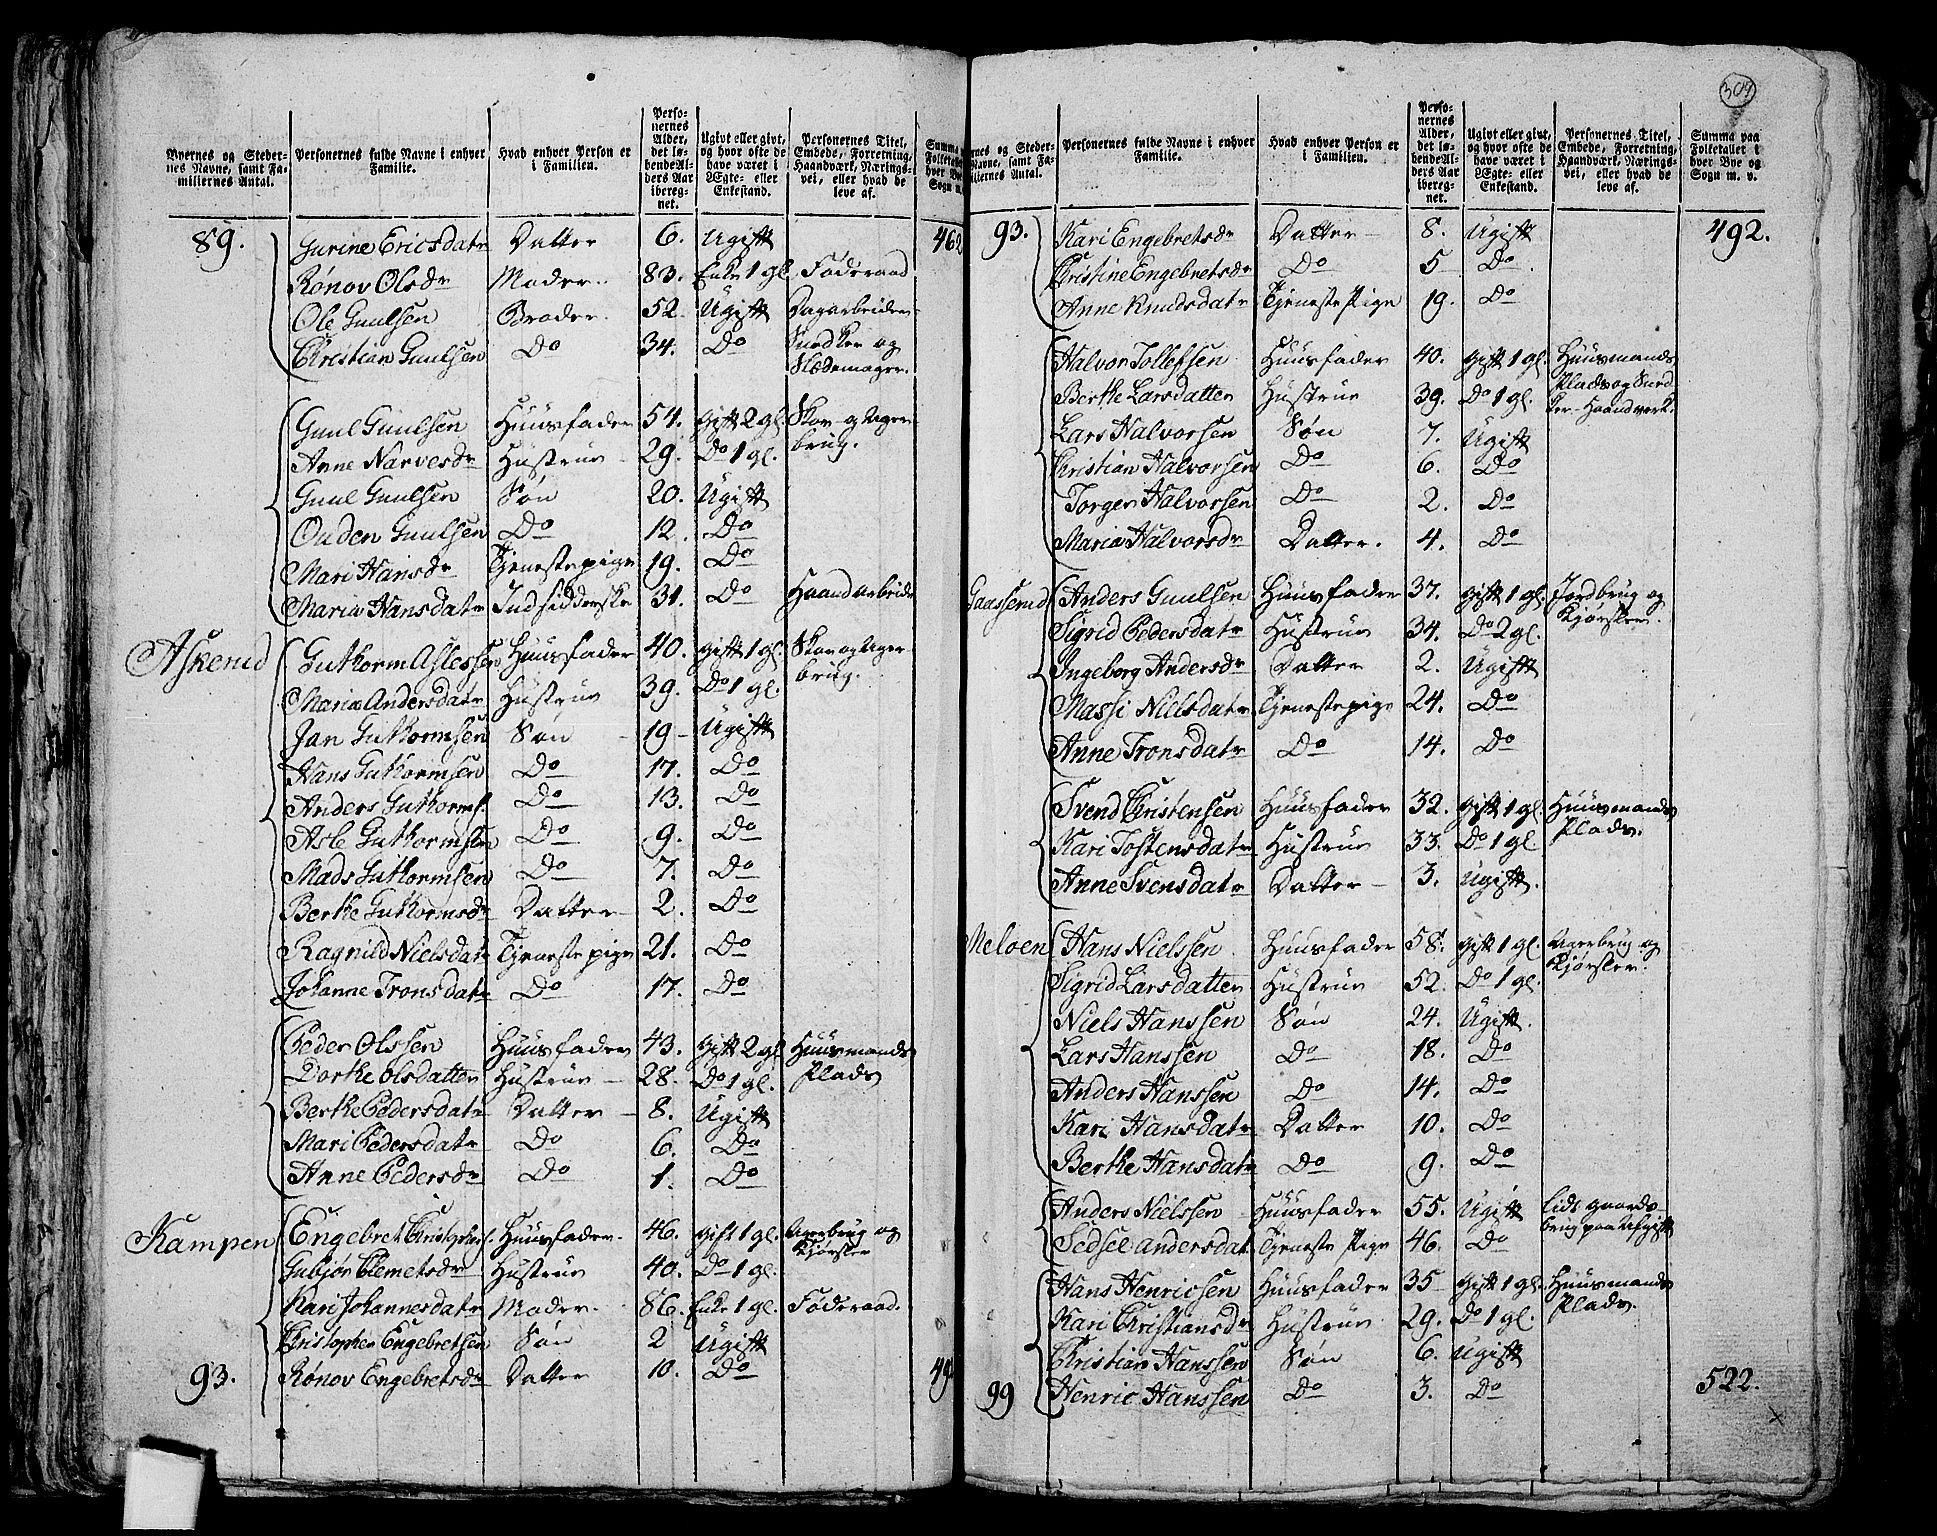 Byernes og Steder-
nes Navne, samt Fa-
miliernes Antal.
Personernes fulde Navne i enhver
Familie.
Hvad enhver Person er
i Familien.
Perso-
nernes
Alder,
det lø-
bende Al-
ders Aar
ibereg-
net.
Ugivt eller givt,
og hvor ofte de
have været i
Ægte- eller
Enkestand.
Personernes Titel,
Embede, Forretning,
Haandværk, Nærings-
vei, eller hvad de
leve af.
89. Gurine Ericsdatr Datter 6. Ugift 462
Rønov Olsdr Moder. 83. Enke 1 gl. Føderaad
Ole Guulsen Broder. 52. Ugift Dagarbeider
Christian Guulsen Do 34. Do Snedker og
Slædemager.
Guul Guulsen Huusfader 54. Gift 2 gl. Skov og Ager-
brug.
Anne Narvesdr Hustrue 29. Do 1 gl.
Guul Guulsen Søn 20. Ugift
Ouden Guulsen Do 12. Do
Mari Hansdr Tjenestepige 19. Do
Maria Hansdatr Indsidderske 31. Do Haandarbeide
Askerud Guthorm Aslessen Huusfader 40. Gift 1 gl. Skov og Ager-
brug.
Maria Andersdatr Hustrue 39. Do 1 gl.
Jan Guthormsen Søn 19 Ugift
Hans Guthormsen Do 17. Do
Anders Guthorms. Do 13. Do
Asle Guthormsen Do 9. Do
Mads Guthormsen Do 7. Do
Berthe Guthormsdr Datter 2. Do
Ragnild Nielsdatr Tjenestepige 21. Do
Johanne Tronsdatr Do 17. Do
Peder Olssen Huusfader 43. Gift 2 gl. Huusmands
Plads
Dorthe Olsdatter Hustrue 28. Do 1 gl.
Berthe Pedersdatr Datter 8. Ugift
Mari Pedersdatr Do 6. Do
Anne Pedersdr Do 1. Do
Kampen Engebret Christophers. Huusfader. 46. Gift 1 gl. Agerbrug og
Kjørsler
Gubjør Clemetsdr Hustrue 40. Do 1 gl.
Kari Johannesdatr Moder. 86. Enke 1 gl. Føderaad.
Christopher Engebretsen Søn 2 Ugift
93. Rønov Engebretsdr Datter 10. Do
309
Personernes fulde Navne i enhver
Familie.
Hvad enhver Person er
i Familien.
Perso-
nernes
Alder,
det lø-
bende Al-
ders Aar
ibereg-
net.
Ugivt eller givt,
og hvor ofte de
have været i
Ægte- eller
Enkestand.
Personernes Titel,
Embede, Forretning,
Haandværk, Nærings-
vei, eller hvad de
leve af.
Summa paa
Folketallet i
hver Bye og
Sogn m. v.
93. Kari Engebretsdr Datter 8. Ugift 492.
Christine Engebretsdr Do 5 Do
Anne Knudsdatr Tjeneste Pige 19. Do
Halvor Tollefsen Huusfader 40. Gift 1 gl. Huusmands
Plads og Sned-
ker-Haandverk.
Berthe Larsdatter Hustrue 39. Do 1 gl.
Lars Halvorsen Søn 7. Ugift
Christian Halvorsen Do 6. Do
Torger Halvorsen Do 2. Do
Maria Halvorsdr Datter. 4. Do
Gaasserud Anders Guulsen Huusfader 37. Gift 1 gl. Jordbrug og
Kjørsler.
Sigrid Pedersdatr Hustrue 34. Do 2 gl.
Ingeborg Andersdr Datter 2. Ugift
Massi Nielsdatr Tjenestepige 24. Do
Anne Tronsdatr Do 14. Do
Svend Christensen Huusfader 32. Gift 1 gl. Huusmands
Plads.
Kari Tostensdatr Hustrue 33. Do 1 gl.
Anne Svensdatr Datter 3. Ugift.
Meloen Hans Nielssen Huusfader 58. Gift 1 gl. Agerbrug og
Kjørsler.
Sigrid Larsdatter Hustrue 52. Do 1 gl.
Niels Hanssen Søn 24. Ugift.
Lars Hanssen Do 18. Do
Anders Hanssen Do 14. Do
Kari Hansdatr Datter 10. Do
Berthe Hansdatr Do 9. Do
Anders Nielssen Huusfader 55. Ugift lidt Gaards-
brug paa Afgift
Sedsel Andersdat Tjeneste Pige 46. Do
Hans Henricsen Huusfader 35 Gift 1 gl. Huusmands
Plads.
Kari Christiansdr Hustrue 29. Do 1 gl.
Christian Hanssen Søn 6. Ugift
99 Henric Hanssen Do 3. Do 522.